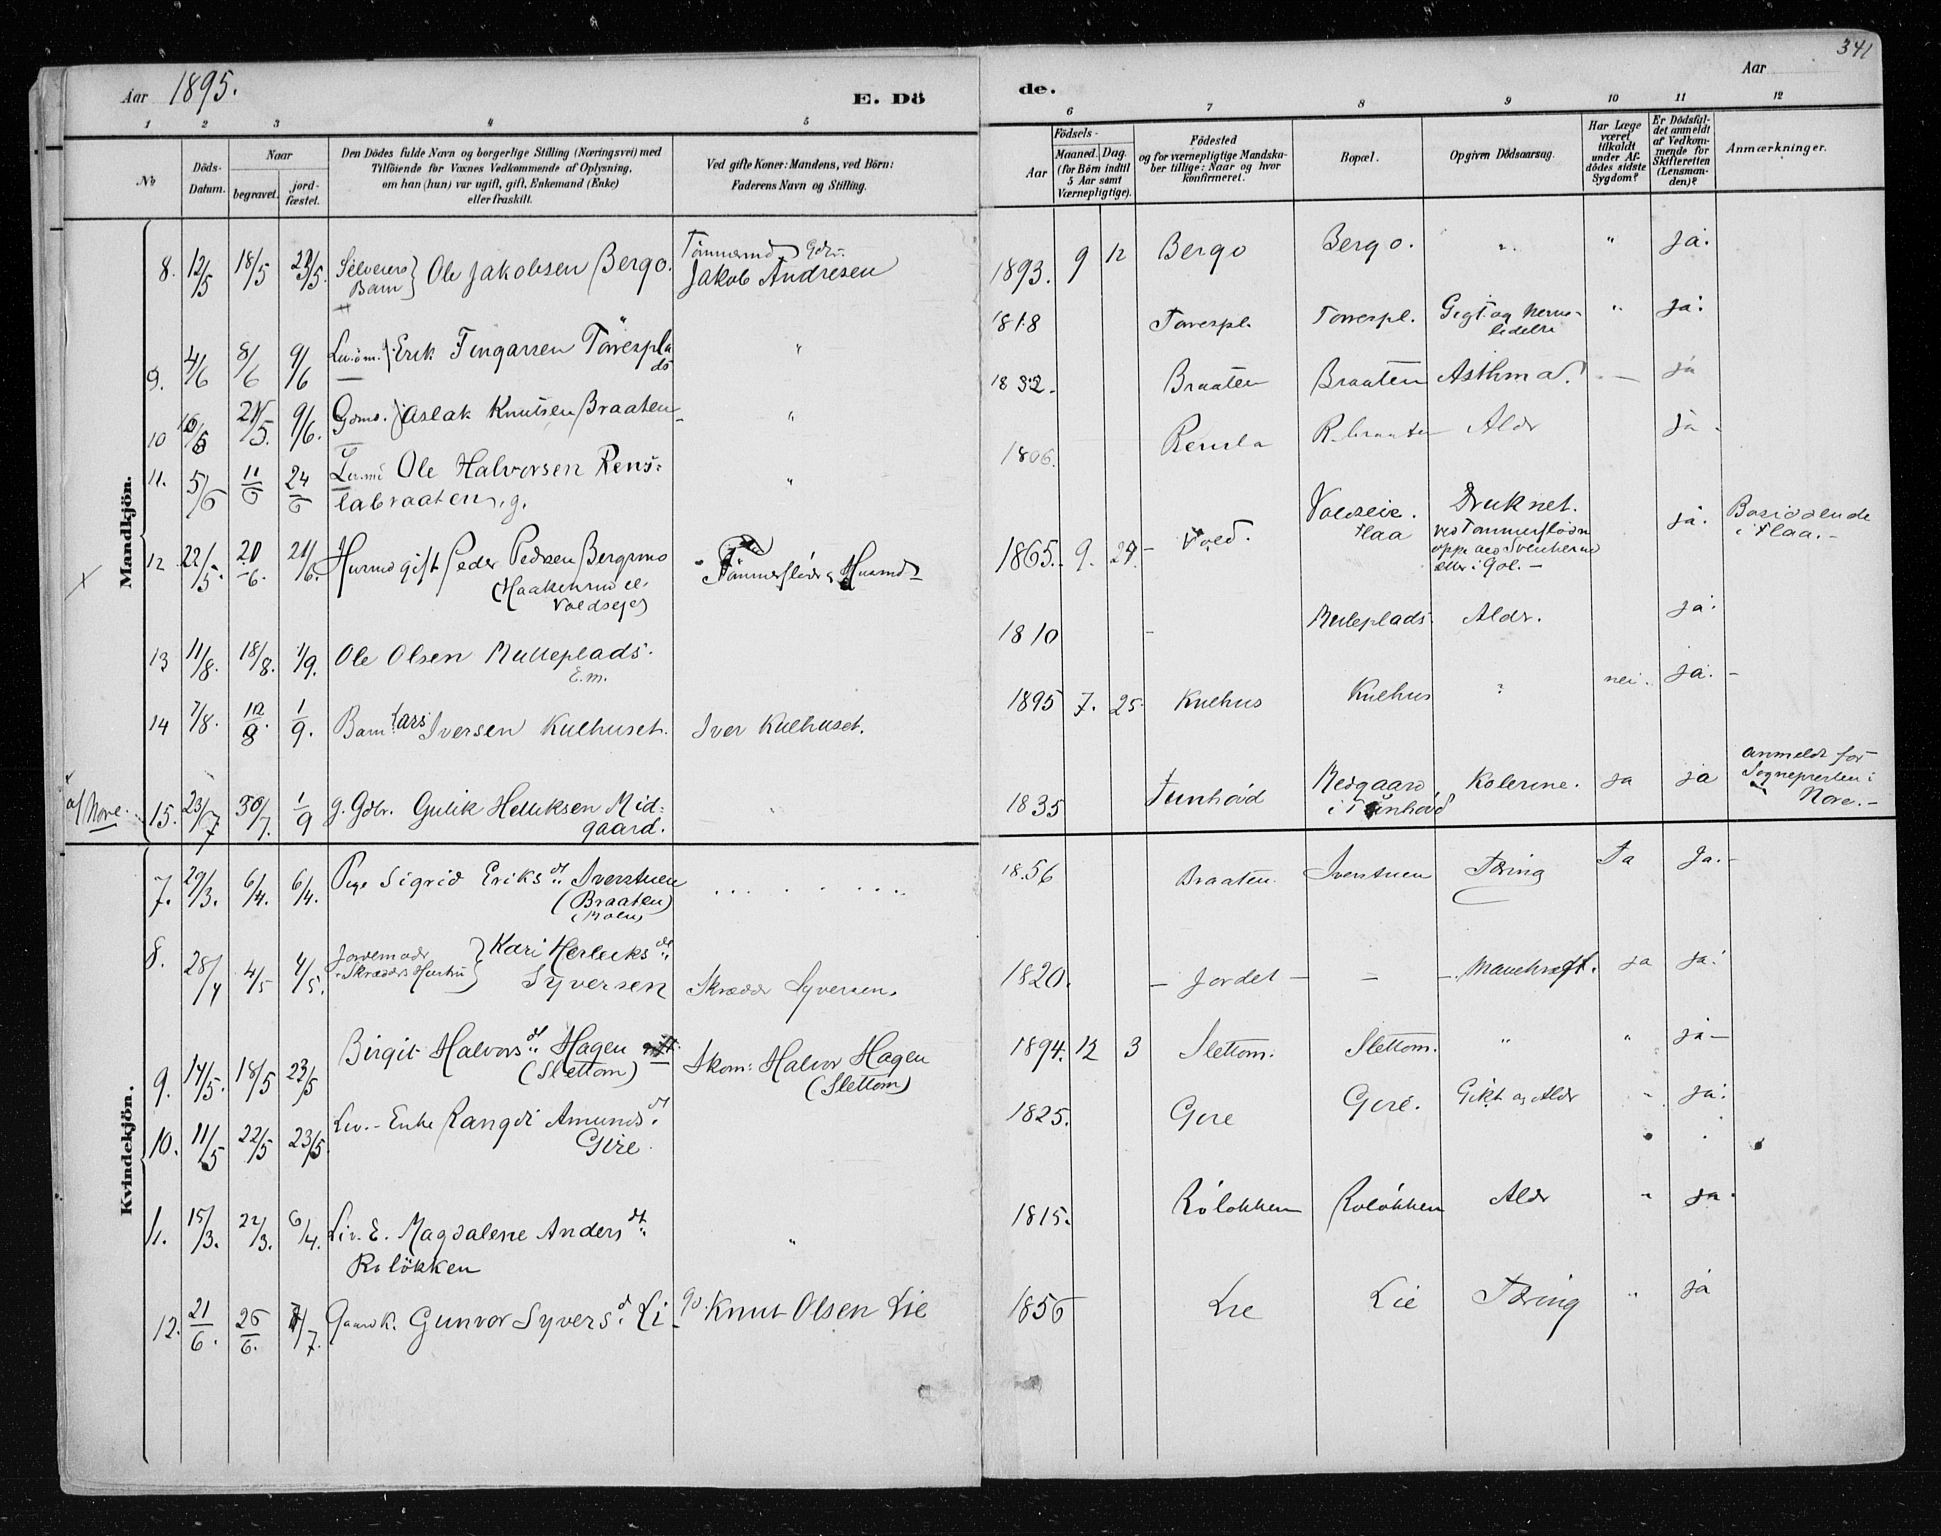 341
Aar 1895.
E. Dö
de.
Aar
1 2 3 4 5
6 7 8 9 10 11 12
No
Döds-Datum.
Naar
begravet.
jord-fæstet.
Den Dödes fulde Navn og borgerlige Stilling (Næringsvei) med
Tilföiende for Voxnes Vedkommende af Oplysning,
om han (hun) var ugift, gift, Enkemand (Enke)
eller fraskilt.
Ved gifte Koner: Mandens, ved Börn:
Faderens Navn og Stilling.
Födsels-
Aar
Maaned. Dag.
(for Börn indtil
5 Aar samt
Værnepligtige).
Födested
og for værnepligtige Mandska-
ber tillige: Naar og hvor
konfirmeret.
Bopæl.
Opgiven Dödsaarsag.
Har Læge
været
tilkaldt
under Af-
dödes sidste
Sygdom?
Er Dödsfal-
det anmeldt
af Vedkom-
mende for
Skifteretten
(Lensman-
den)?
Anmærkninger.
Mandkjön.
8. 12/5 18/5 Selveiers Barn } Ole Jakobsen Bergo. Jakob Andresen 1893. 9 12 Bergo Bergo. " " ja.
9. 4/6 8/6 9/6 Erik Fingarsen Torrespl " 1818 Torrespl. Torrespl. Gigt og ja.
10 9/6. Gdms. Aslak Knutsen Braaten " 1832. Braaten Braaten Asthma. — ja
11. 5/6 11/6 24/6 Ole Halvorsen Rens-
labraaten. g. " 1806. Rensla Aldr ja
12 22/5. 20/6. 21/6. Husmd gift Peder Pedersen Bergsmo
(Haakenrud el.
Voldseje) Tömmerflöder, Husmd 1865. 9. 27 Vold. Voldseie.
Flaa Druknet.
ved Tømmerfløden
i Gol. ja. Bosiddende
i Flaa.
13 11/8. 18/8. 1/9. Ole Olsen Mulleplads.
E. m. 1810 - Mulleplads. Aldr. ja.
14 7/8. 1/9. Barn Lars Iversen Kulhuset. Iver Kulhuset. 1895 7. 25. Kulhus Kulhus " nei. ja.
af Nore.
15. 23/7 30/7. 1/9 g. Gdbr. Gulik Helliksen Mid-
gaard. 1835 Tunhövd Medgaard
i Tunhövd Kolerine. ja ja anmeldt for
Sogneprester i
Nore.
Kvindekjön.
7. 29/3. 6/4. 6/4. Pige Sigrid Eriks dt. Iverstuen
(Braaten) 1856 Braaten. Iverstuen Tæring Ja Ja.
8. 28/4 4/5 4/5. Jordemoder
Skrædders Hustru } Kari Herleiks dt.
Syversen Skrædder Syversen. 1820. - Jordet - - - Mavekræft. ja ja.
9. 14/5. 18/5 23/5 Birgit Halvors dt. Hagen
(Slettom) Skom: Halvor Hagen
(Slettom) 1894. 12 3 Slettom. Slettom. " " ja
10. 11/5 22/5 23/5. Lev. - Enke Rangdi Amunds dt.
Gire. 1825. Gire Gire. Gikt og Aldr - ja.
11. 15/3. 22/3. 6/4. Liv. E. Magdalene Anders dt.
Rolökken " 1815. Rolokken Rolökken Aldr " ja.
12. 21/6. 26/6. Gaardk. Gunvor Syvers d. Li Knut Olsen Lie 1856 Lie Lie Tæring " ja